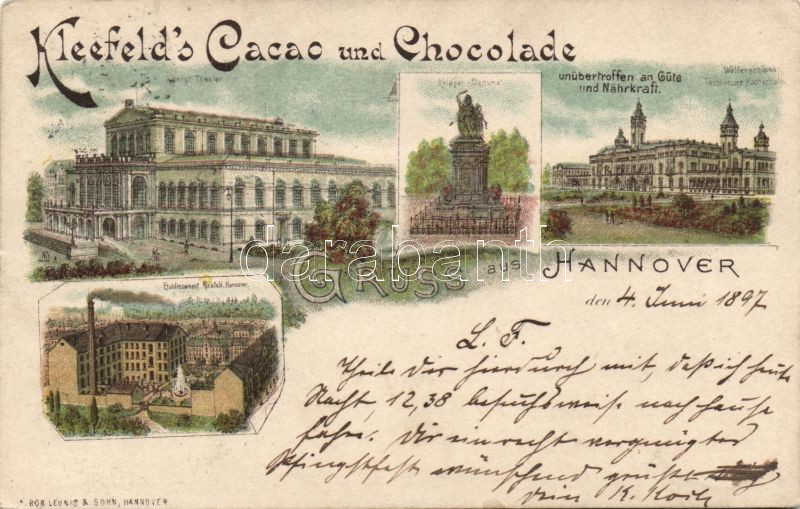 Kleefeld's Cacao und Chocolade
Königl. Theater
Krieger-Denkmal
unübertroffen an Güte
und Nährkraft.
Welfenschloss
Technische Hochschule
darabanth.com
GRUSS aus HANNOVER
Etablissement Kleefeld, Hannover.
den 4. Juni 1897
L. F.
Theile Dir hierdurch mit, daß ich heute
Nacht 12,38 besuchsweise nach hause
fahre. Dir ein recht vergnügtes
Pfingstfest wünschend grüßt
dein K. Koch
ROB LEUNIS & SOHN, HANNOVER